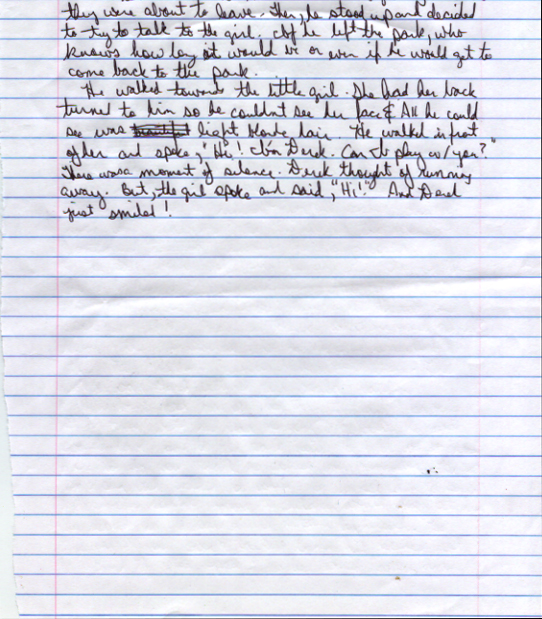 they were about to leave. Then, he stood up and decided
to try to talk to the girl. If he left the park, who
knows how long it would be or even if he would get to
come back to the park.
He walked towards the little girl. She had her back
turned to him so he couldnt see her face & All he could
see was light blonde hair. He walked in front
of her and spoke, "Hi! I'm Derek. Can I play w/ you?"
There was a moment of silence. Derek thought of running
away. But, the girl spoke and said, "Hi!" And Derek
just smiled!